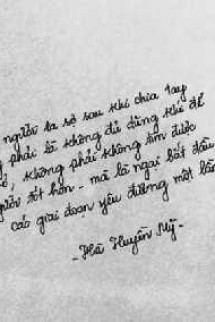 người ta sợ sau khi chia tay
phải là không đủ dũng khí để
, không phải không tìm được
tốt hơn - mà là ngại bắt đầu
các giai đoạn yêu đương một lần
- Hà Huyền My -